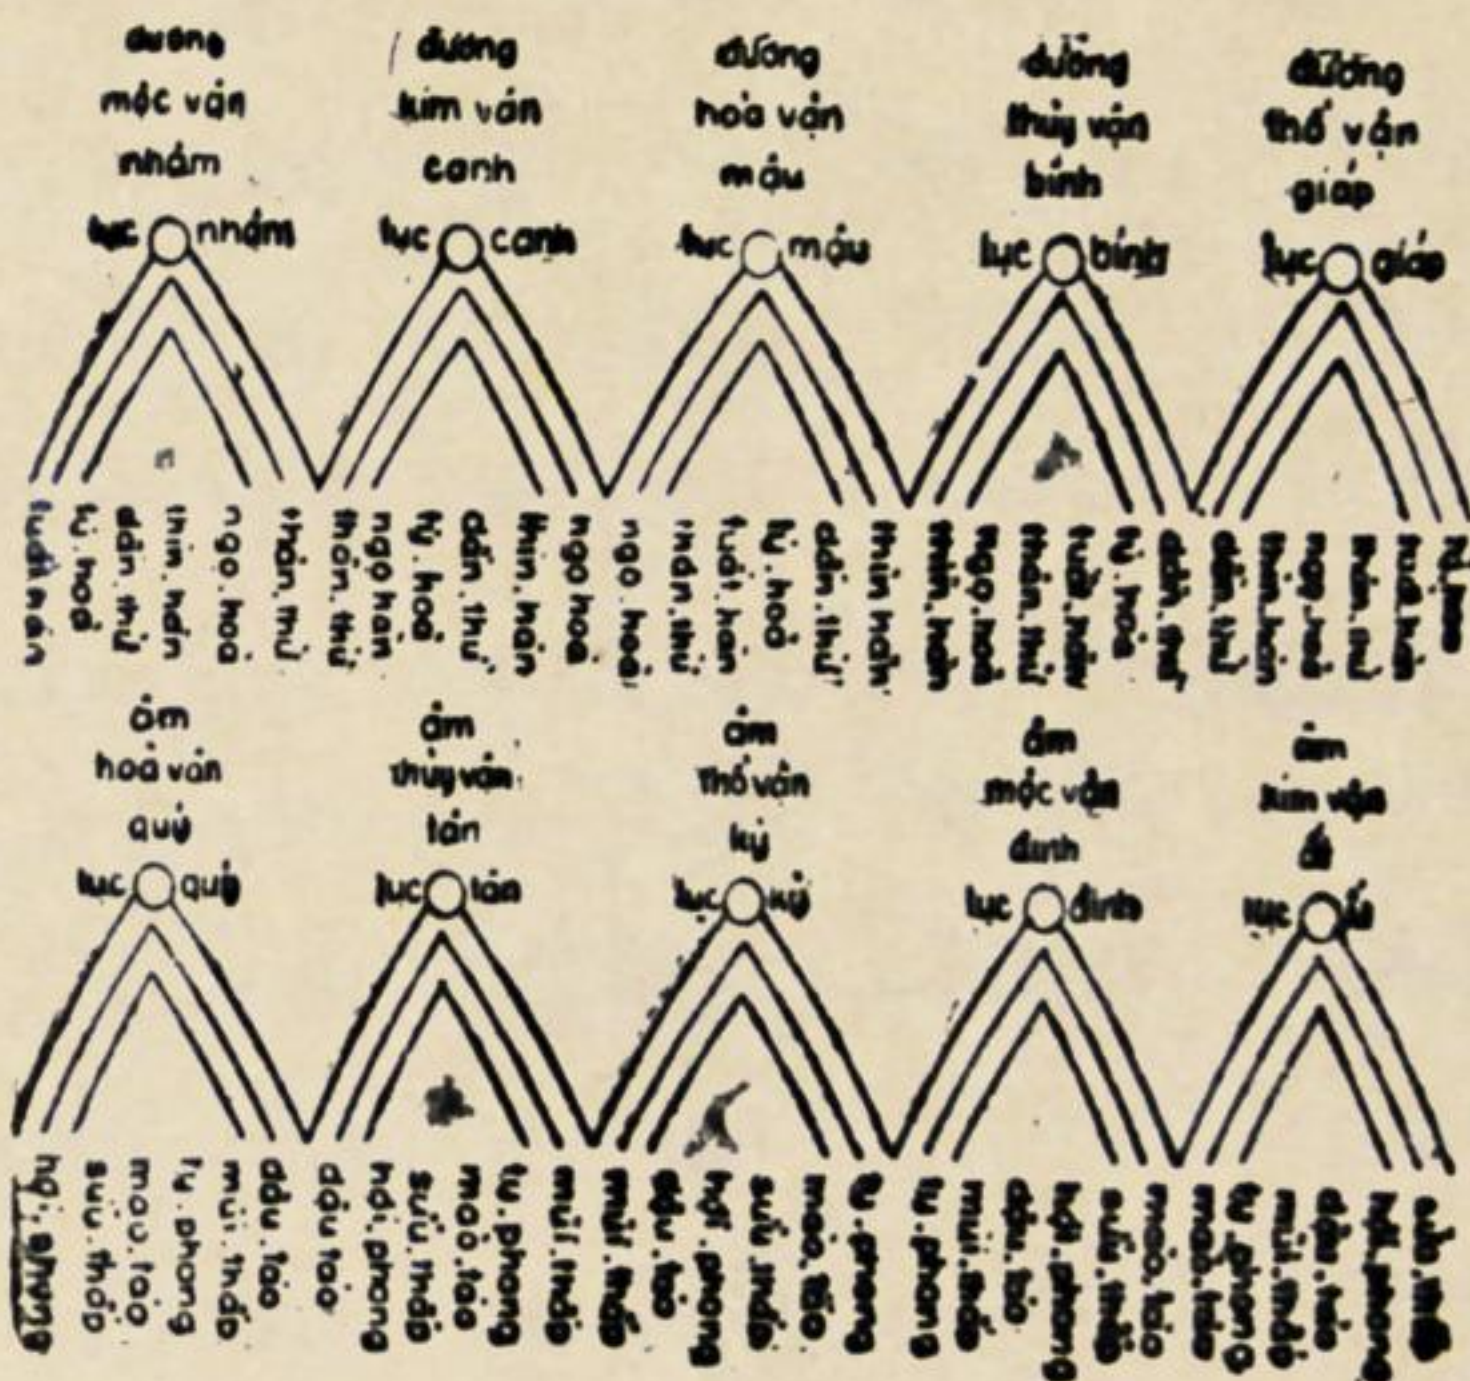 dương
mộc vận
nhâm
lục nhâm
dương
kim vận
canh
lục canh
dương
hoả vận
mậu
lục mậu
dương
thủy vận
bính
lục bính
dương
thổ vận
giáp
lục giáp
tuất.hàn
tý.hoả
dần.thử
thìn.hàn
ngọ.hoả
thân.thử
thân.thử
ngọ hàn
tý.hoả
dần.thử
thìn.hàn
ngọ hoả
ngọ.hoả
thân.thử
tuất.hàn
tý.hoả
dần.thử
thìn hàn
thìn.hàn
ngọ.hoả
thân.thử
tuất.hàn
tý.hoả
dần.thử
dần.thử
thìn.hàn
ngọ.hoả
thân.thử
tuất.hàn
tý.hoả
âm
hoả vận
quý
lục quý
âm
thủy vận
tân
lục tân
âm
thổ vận
kỷ
lục kỷ
âm
mộc vận
đinh
lục đinh
âm
kim vận
ất
lục ất
hợi.phong
sửu.thấp
mão.táo
tỵ.phong
mùi.thấp
dậu.táo
dậu táo
hợi.phong
sửu.thấp
mão.táo
tỵ.phong
mùi.thấp
mùi.thấp
dậu.táo
hợi.phong
sửu.thấp
mão.táo
tỵ.phong
tỵ.phong
mùi.thấp
dậu.táo
hợi.phong
sửu.thấp
mão.táo
mão.táo
tỵ.phong
mùi.thấp
dậu.táo
hợi.phong
sửu.thấp